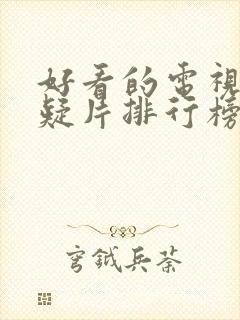 好看的電視
疑片排行榜
穹鉞兵荼